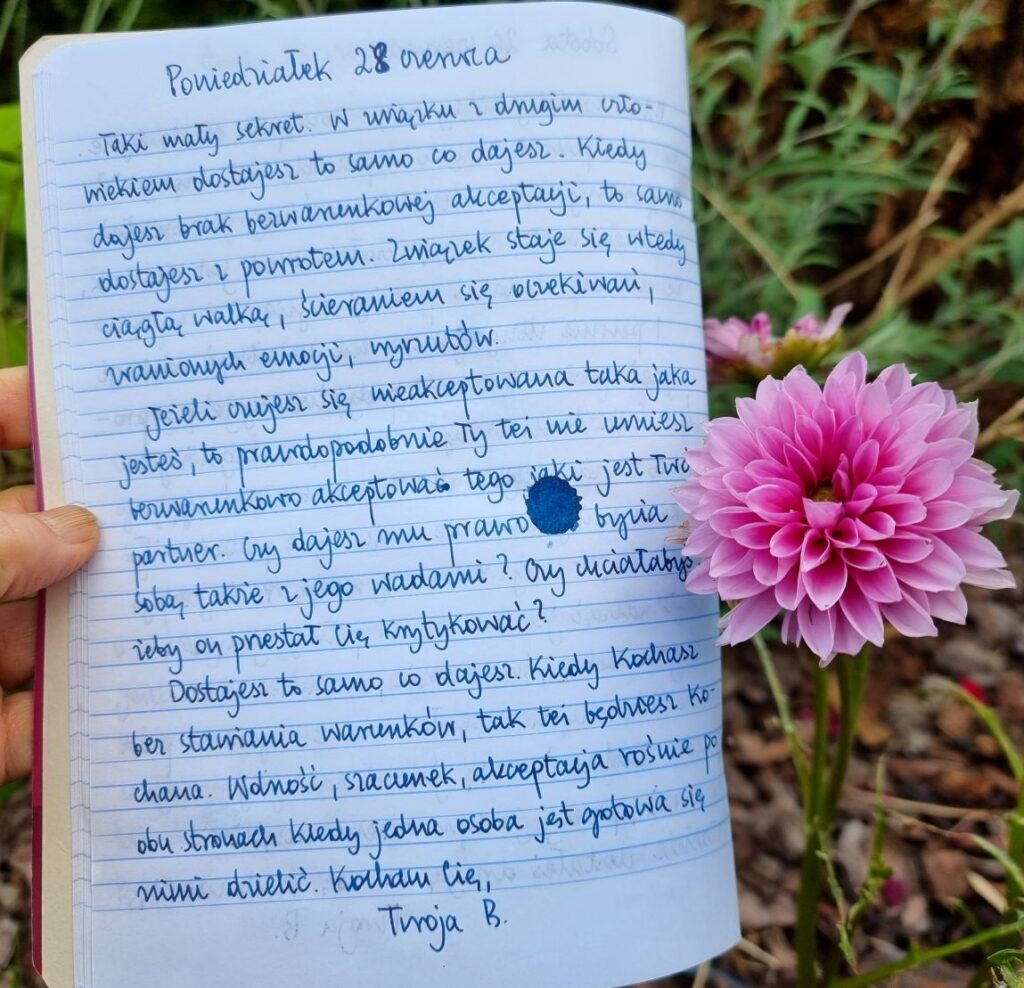 Poniedziałek 28 czerwca
Taki mały sekret. W związku z drugim czło-
wiekiem dostajesz to samo co dajesz. Kiedy
dajesz brak bezwarunkowej akceptacji, to samo
dostajesz z powrotem. Związek staje się wtedy
ciągłą walką, ścieraniem się oczekiwań,
zranionych emocji, wyrzutów.
Jeżeli czujesz się nieakceptowana taka jaka
jesteś, to prawdopodobnie Ty też nie umiesz
bezwarunkowo akceptować tego jaki jest Twój
partner. Czy dajesz mu prawo bycia
sobą także z jego wadami? Czy chciałabyś
żeby on przestał Cię krytykować?
Dostajesz to samo co dajesz. Kiedy kochasz
bez stawiania warunków, tak też będziesz ko-
chana. Wolność, szacunek, akceptacja rośnie po
obu stronach kiedy jedna osoba jest gotowa się
nimi dzielić. Kocham Cię,
Twoja B.